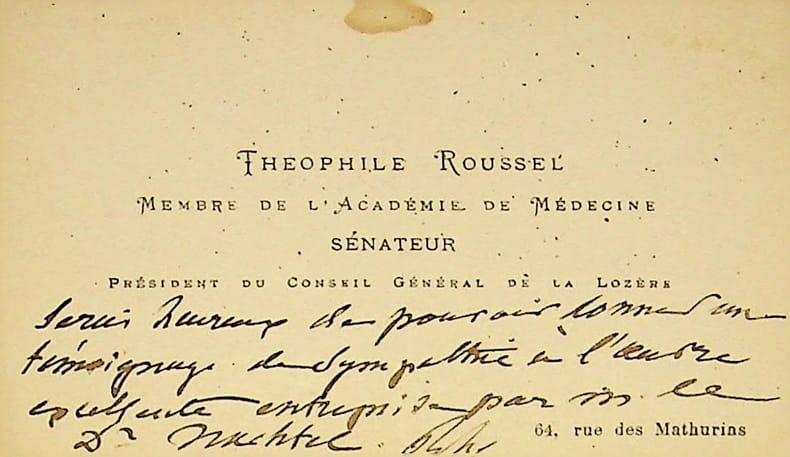 THEOPHILE ROUSSEL
MEMBRE DE L'ACADÉMIE DE MÉDECINE
SÉNATEUR
PRÉSIDENT DU CONSEIL GÉNÉRAL DE LA LOZÈRE
Serais heureux de pouvoir donner un
témoignage de sympathie à l'œuvre
excellente entreprise par m. le
Dr Nachtel.
64, rue des Mathurins